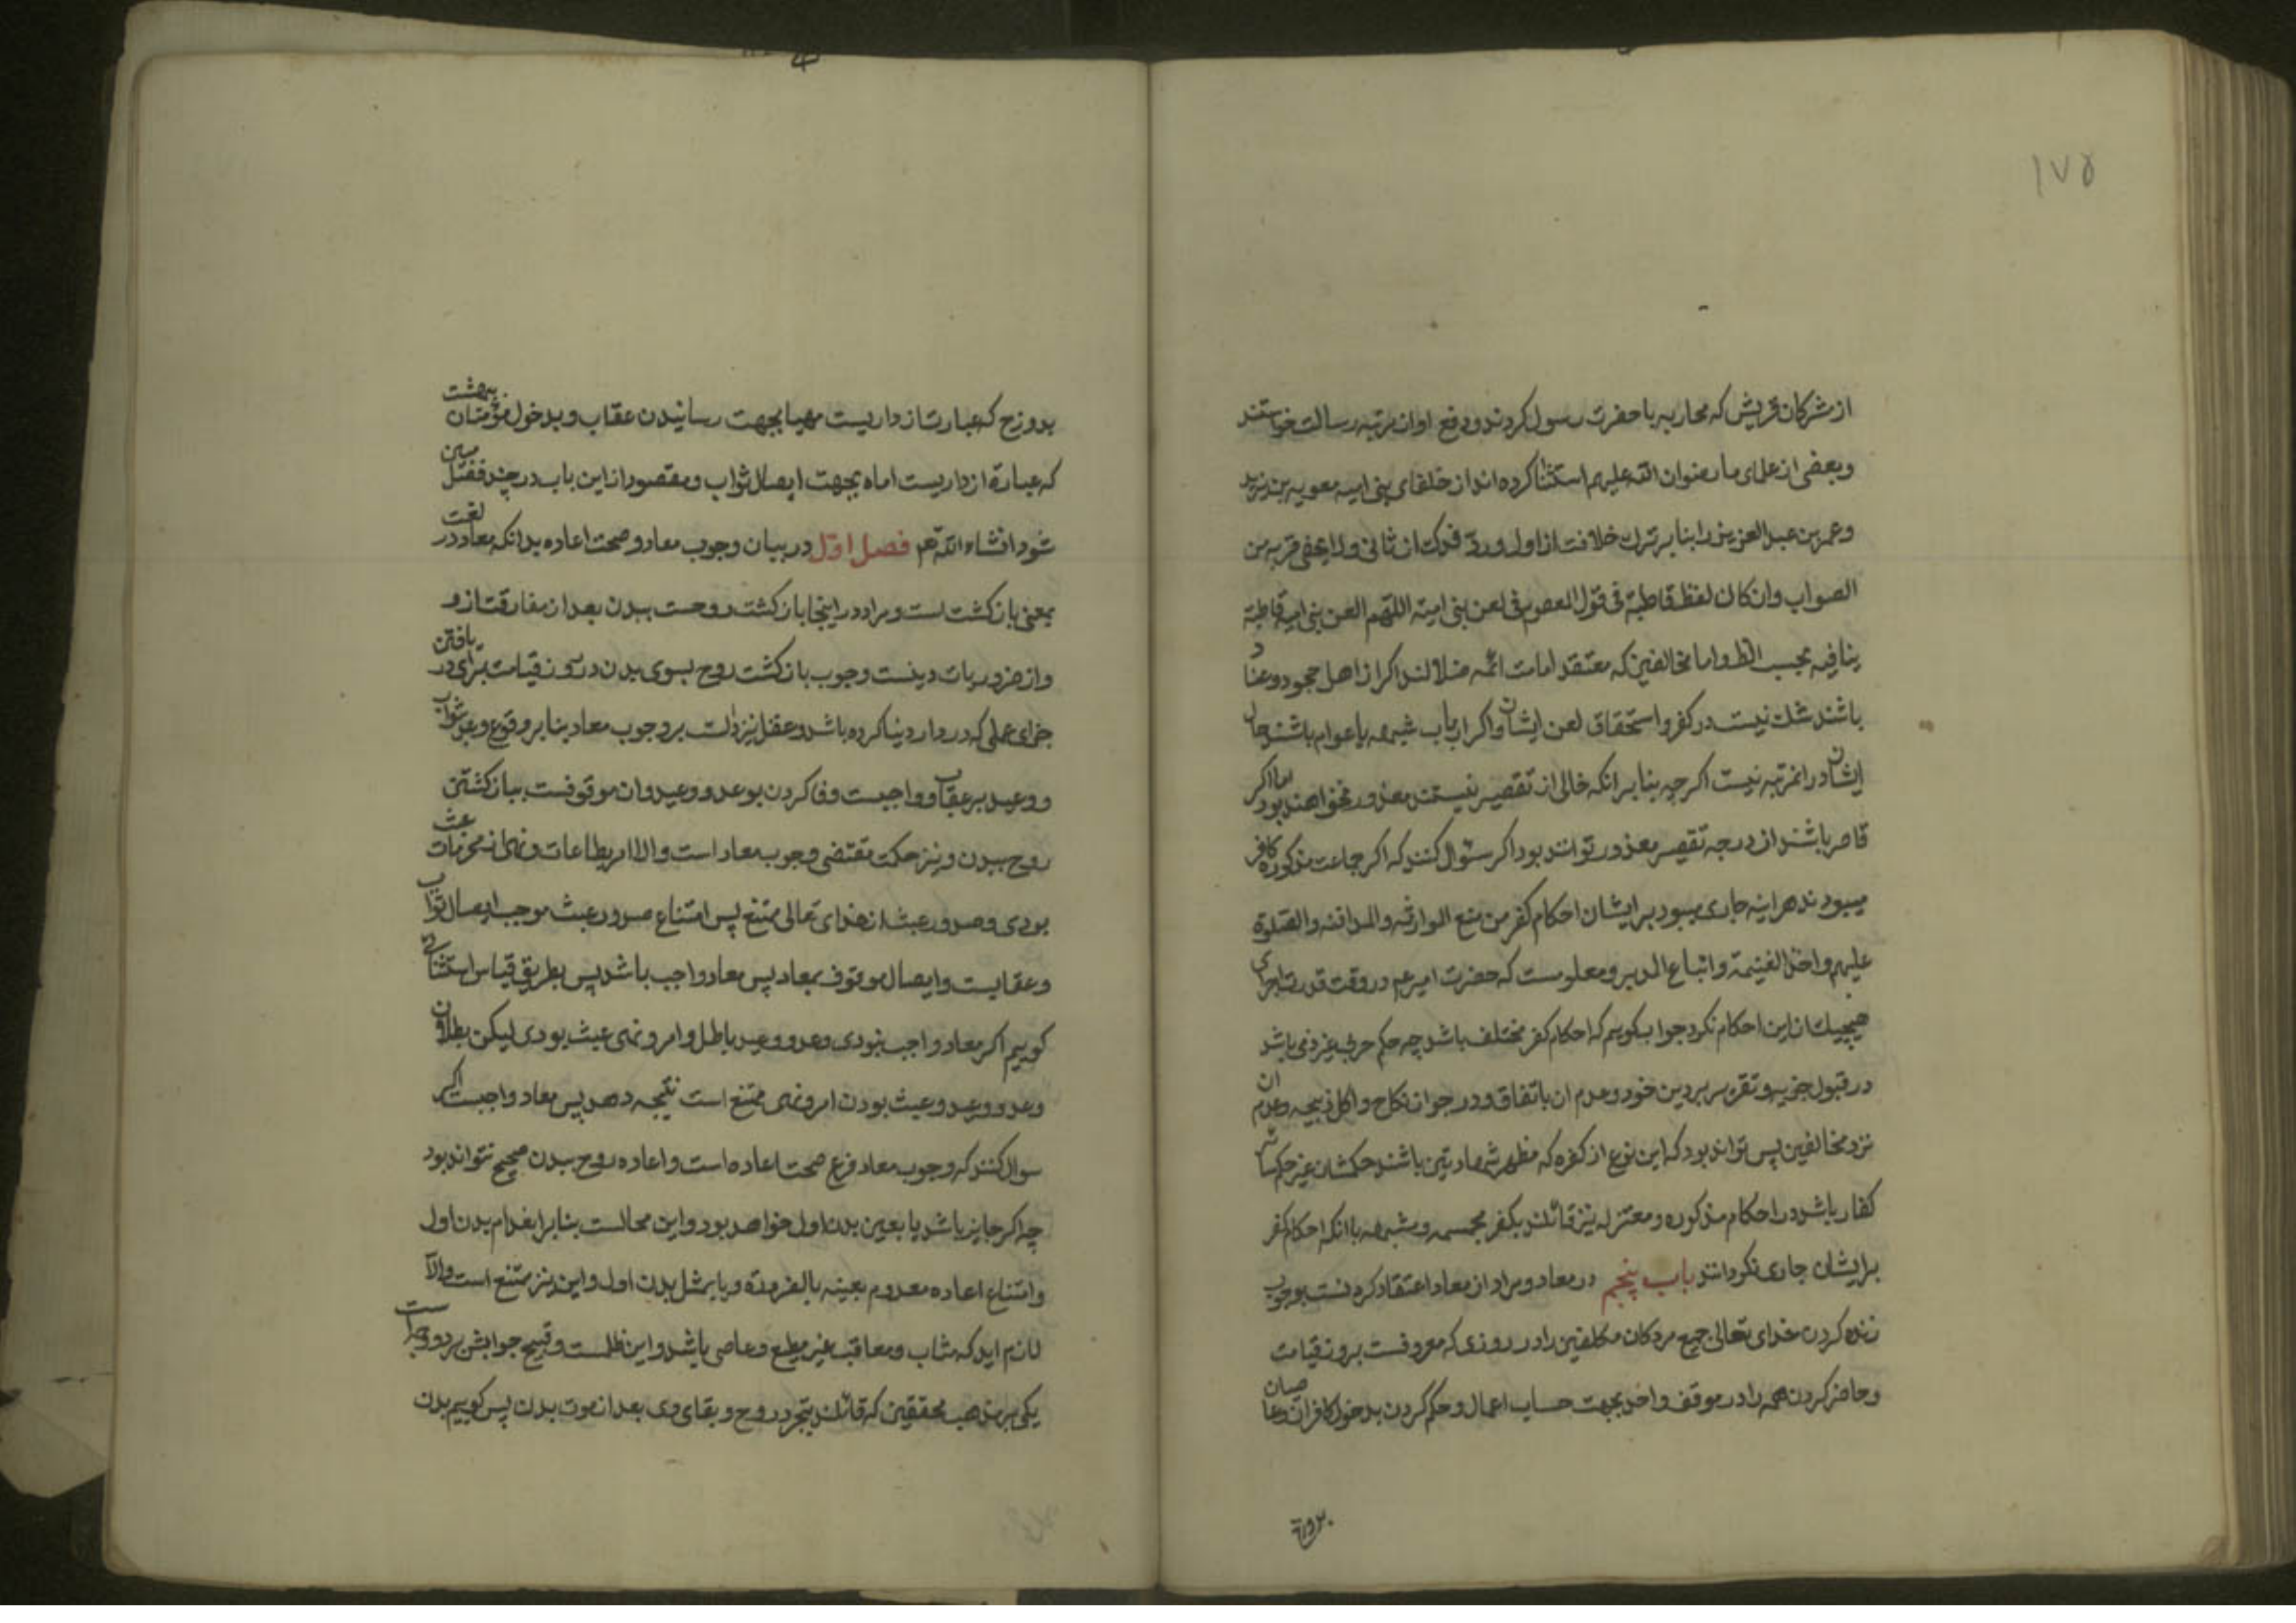 ۱۷۵
از مشرکان قریش که محاربه با حضرت رسول کردند و دفع او از مرتبه رسالت خواستند
و بعضی از علمای ما رضوان الله علیهم استثنا کرده‌اند از خلفای بنی امیه معویه بن یزید
و عمر بن عبد العزیز را بنا بر ترک خلافت از اول و رد فدک از ثانی و لا یخفی قربه من
الصواب وان کان لفظ قاطبة فی قول المعصوم فی لعن بنی امیة اللهم العن بنی امیة قاطبة
ینافیه بحسب الظ و اما مخالفین که معتقد امامت ائمه ضلالند اگر از اهل جحود و عناد
باشند شک نیست در کفر و استحقاق لعن ایشان و اگر ارباب شبهه یا عوام باشند حال
ایشان در انمرتبه نیست اگرچه بنا بر انکه خالی از تقصیر نیستند معذور نخواهند بود اما اگر
قاصر باشند از درجه تقصیر معذور توانند بود اگر سئوال کنند که اگر جماعت مذکوره کافر
میبودند هر اینه جاری میبود بر ایشان احکام کفر من منع الموارثه والمدافنه والصلوة
علیهم واخذ الغنیمة واتباع المدبر و معلومست که حضرت امیر عم در وقت قدرت اجرای
هیچیک از این احکام نکرد جواب کوییم که احکام کفر مختلف باشد چه حکم حربی غیر ذمی باشد
در قبول جزیه و تقریر بر دین خود و عدم ان باتفاق و در جواز نکاح و اکل ذبیحه و عدم ان
نزد مخالفین پس تواند بود که این نوع از کفره که مظهر شهادتین باشند حکمشان غیر حکم سایر
کفار باشد در احکام مذکوره و معتزله نیز قائلند بکفر مجسمه و مشبهه با انکه احکام کفر
بر ایشان جاری نکردانند باب پنجم در معاد و مراد از معاد اعتقاد کردنست بوجوب
زنده کردن خدای تعالی جمیع مردکان مکلفین را در روزی که معروفست بروز قیامت
و حاضر کردن همه را در موقف واحد بجهت حساب اعمال و حکم کردن بدخول کافران و عاصیان
بدوزخ که عبارتست از داریست مهیا بجهت رسانیدن عقاب و بدخول مؤمنان ببهشت
که عبارة از داریست اماده بجهت ایصال ثواب و مقصود از این باب در چند فصل مبین
شود انشاء الله تعم فصل اول در بیان وجوب معاد و صحت اعاده بدانکه معاد در لغت
بمعنی باز کشت است و مراد در اینجا باز کشت روحست ببدن بعد از مفارقت از و
و از ضروریات دینست وجوب باز کشت روح بسوی بدن در روز قیامت برای در یافتن
جزای عملی که در دار دنیا کرده باشد و عقل نیز دالست بر وجوب معاد بنا بر وقوع وعد بر ثواب
و وعید بر عقاب و واجبست وفا کردن بوعد و وعید و ان موقوفست بباز کشتن
روح ببدن و نیز حکمت مقتضی وجوب معاد است و الا امر بطاعات و نهی از محرمات عبث
بودی و صدور عبث از خدای تعالی ممتنع پس امتناع صدور عبث موجب ایصال ثواب
و عقابست و ایصال موقوف بمعاد پس معاد واجب باشد پس بطریق قیاس استثنائی
کوییم اگر معاد واجب نبودی وعد و وعید باطل و امر و نهی عبث بودی لیکن بطلان
وعد و وعید و عبث بودن امر و نهی ممتنع است نتیجه دهد پس معاد واجبست اگر
سوال کنند که وجوب معاد فرع صحت اعاده است و اعاده روح ببدن صحیح نتواند بود
چه اگر جایز باشد یا بعین بدن اول خواهد بود و این محالست بنا بر انعدام بدن اول
و امتناع اعاده معدوم بعینه بالضرورة و یا بمثل بدن اول و این نیز ممتنع است والا
لازم اید که مثاب و معاقب غیر مطیع و عاصی باشد و این ظلمست و قبیح جوابش بر دو وجه است
یکی بر مذهب محققین که قائلند بتجرد روح و بقای وی بعد از موت بدن پس کوییم بدن